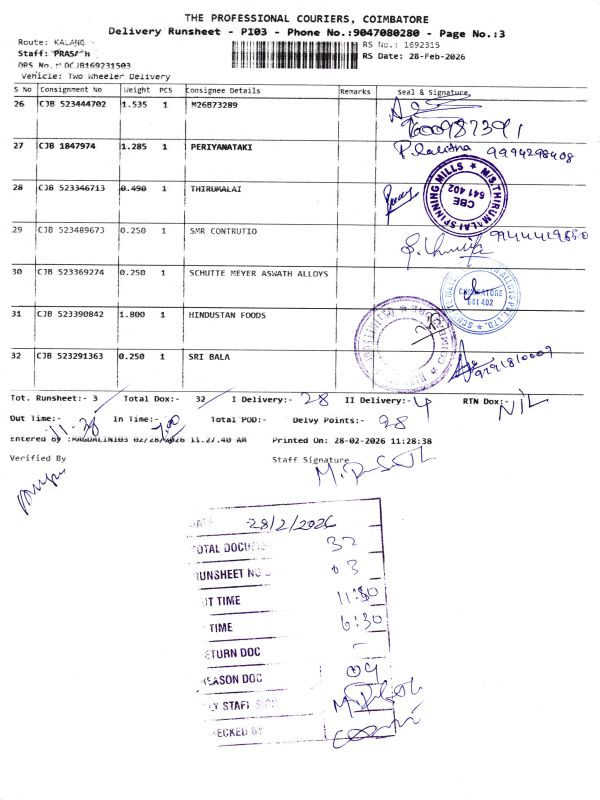 THE PROFESSIONAL COURIERS, COIMBATORE
Delivery Runsheet - P103 - Phone No.:9047080280 - Page No.:3
Route: KALANG -
RS No.: 1692315
Staff: PRASATH
RS Date: 28-Feb-2026
DRS No.: DCJB169231503
Vehicle: Two Wheeler Delivery
S No Consignment No Weight PCS Consignee Details Remarks Seal & Signature
26 CJB 523444702 1.535 1 M26B73289
27 CJB 1847974 1.285 1 PERIYANATAKI P. Lalitha 9994298408
28 CJB 523346713 0.490 1 THIRUMALAI
M/S. THIRUMALAI SPINNING MILLS ★ CBE 641 402
29 CJB 523489673 0.250 1 SMR CONTRUTIO
30 CJB 523369274 0.250 1 SCHUTTE MEYER ASWATH ALLOYS
COIMBATORE 641 402
31 CJB 523390842 1.800 1 HINDUSTAN FOODS
32 CJB 523291363 0.250 1 SRI BALA
Tot. Runsheet:- 3 Total Dox:- 32 I Delivery:- 28 II Delivery:- 4 RTN Dox:- NIL
Out Time:- 11-30 In Time:- 7.00 Total POD:- Delvy Points:- 28
Entered By :MAGDALIN103 02/28/2026 11.27.40 AM Printed On: 28-02-2026 11:28:38
Verified By Staff Signature
28/2/2026
OTAL DOCU 32
UNSHEET NO 03
T TIME 11:30
TIME 6:30
ETURN DOC -
EASON DOC 04
Y STAFF SIGN
ECKED BY